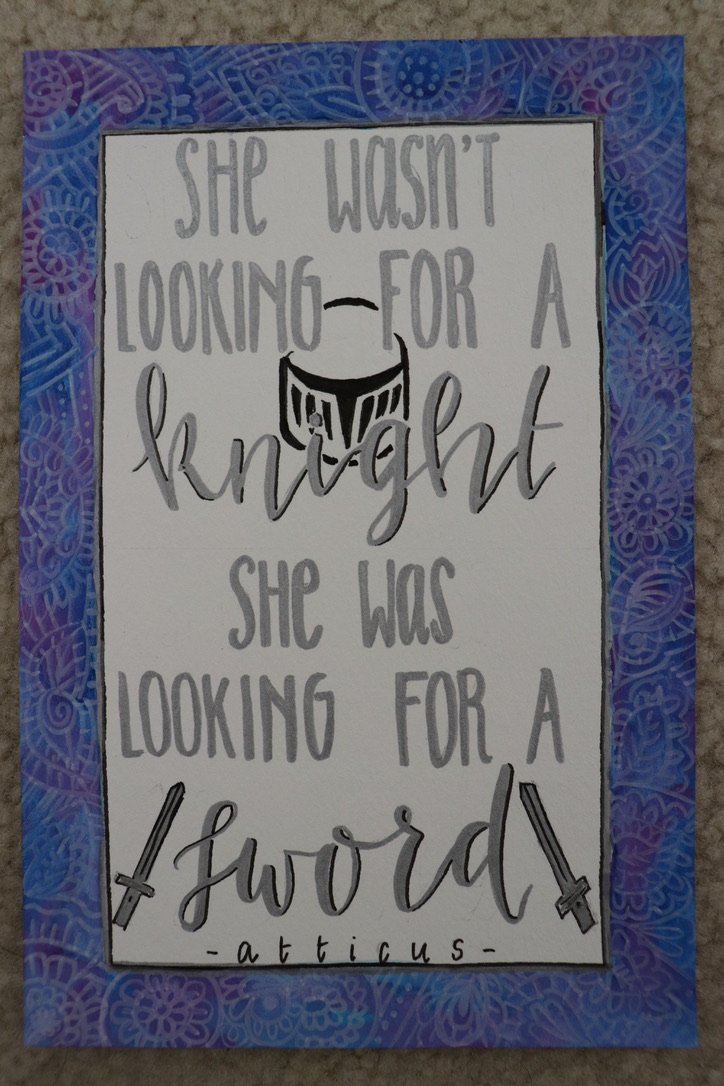 SHe wasn't
LOOKING FOR A
knight
SHe was
LOOKING FOR A
sword
-atticus-